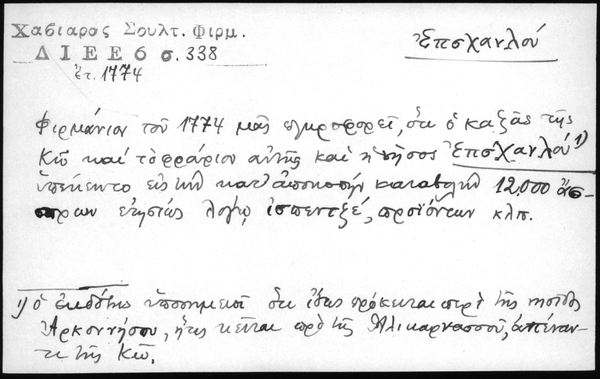 Χαβιαρος Σουλτ. Φιρμ.
ΔΙΕΕ 6 σ. 338
ἔτ. 1774
Ἐπσχανλού
Φιρμάνιον τοῦ 1774 μᾶς πληροφορεῖ, ὅτι ὁ καζᾶς τῆς
Κῶ καὶ τὸ φρούριον αὐτῆς καὶ ἡ νῆσος Ἐπσχανλού 1)
ὑπέκειντο εἰς τὴν κατ' ἀποκοπὴν καταβολὴν 12.000 ἄσ-
πρων ἐτησίως λόγῳ ἰσπεντζέ, προϊόντων κλπ.
1) ὁ ἐκδότης ὑποσημειοῖ ὅτι πρόκειται περὶ τῆς νησῖδος
Ἀρκοννήσου, ἥτις κεῖται πρὸ τῆς Ἁλικαρνασσοῦ, ἀπέναν-
τι τῆς Κῶ.